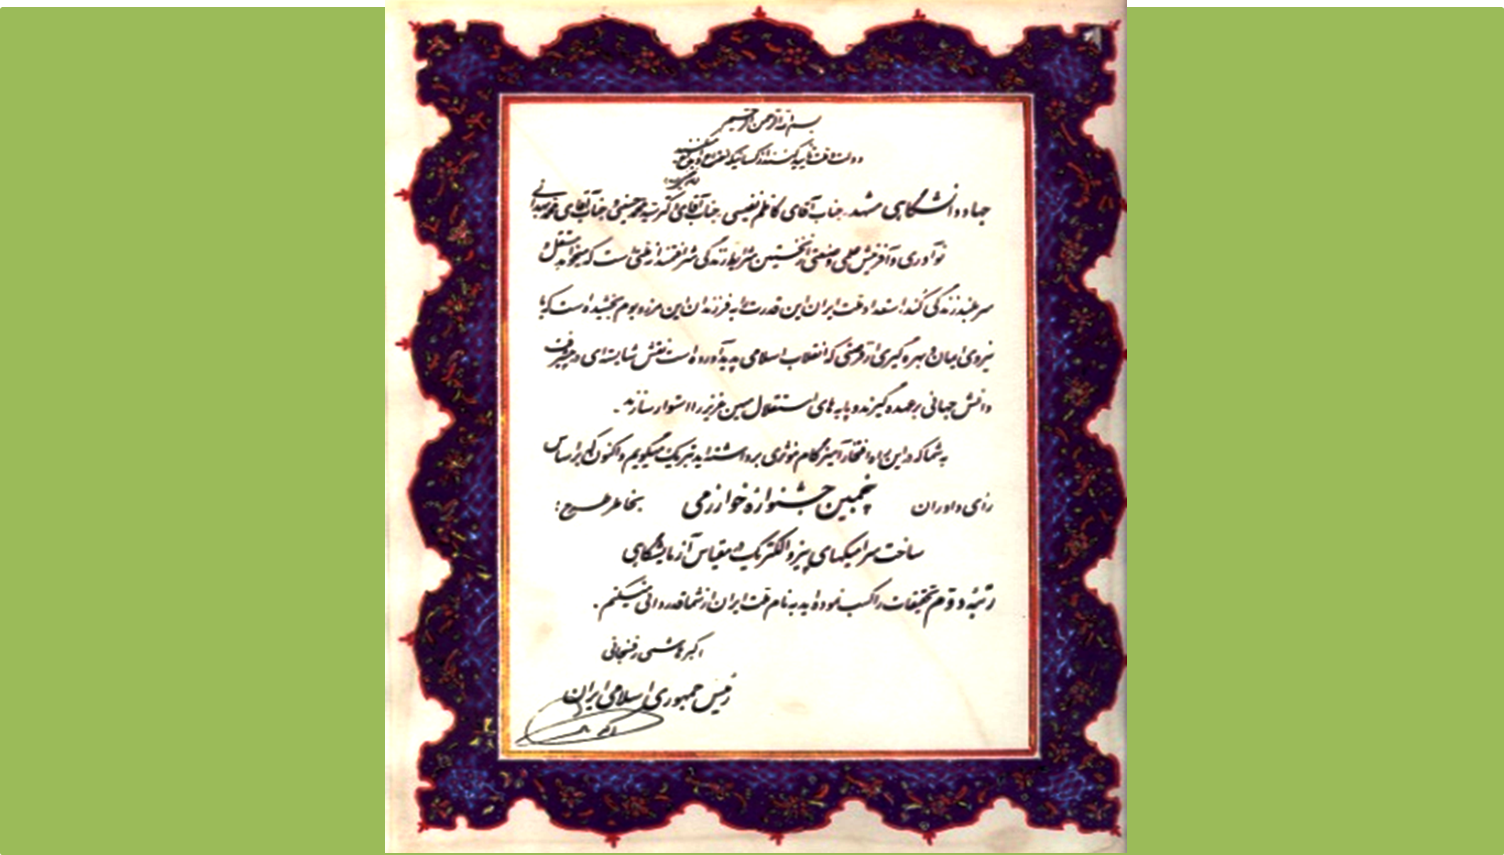 بسم الله الرحمن الرحیم
جهاد دانشگاهی مشهد، جناب آقای کاظم نفیسی، جناب آقای دکتر سید محمد حسینی و جناب آقای
نوآوری و آفرینش علمی و صنعتی از نخستین شرایط زندگی شرافتمندانه ملتی است که میخواهد مستقل و
سربلند زندگی کند. استعداد ملت ایران این قدرت را به فرزندان این مرز و بوم بخشیده است که با
نیروی ایمان و بهره گیری از فرصتی که انقلاب اسلامی پدید آورده است نقش شایسته ای در پیشرفت
دانش جهانی برعهده گیرند و پایه های استقلال میهن عزیز را استوار سازند.
به شما که در این راه افتخارآمیز گام مؤثری برداشته اید تبریک میگویم و اکنون که براساس
رای داوران پنجمین جشنواره خوارزمی بخاطر طرح:
ساخت سرامیکهای پیزوالکتریک در مقیاس آزمایشگاهی
رتبه دوم تحقیقات را کسب نموده اید به نام ملت ایران از شما قدردانی میکنم.
اکبر هاشمی رفسنجانی
رئیس جمهوری اسلامی ایران